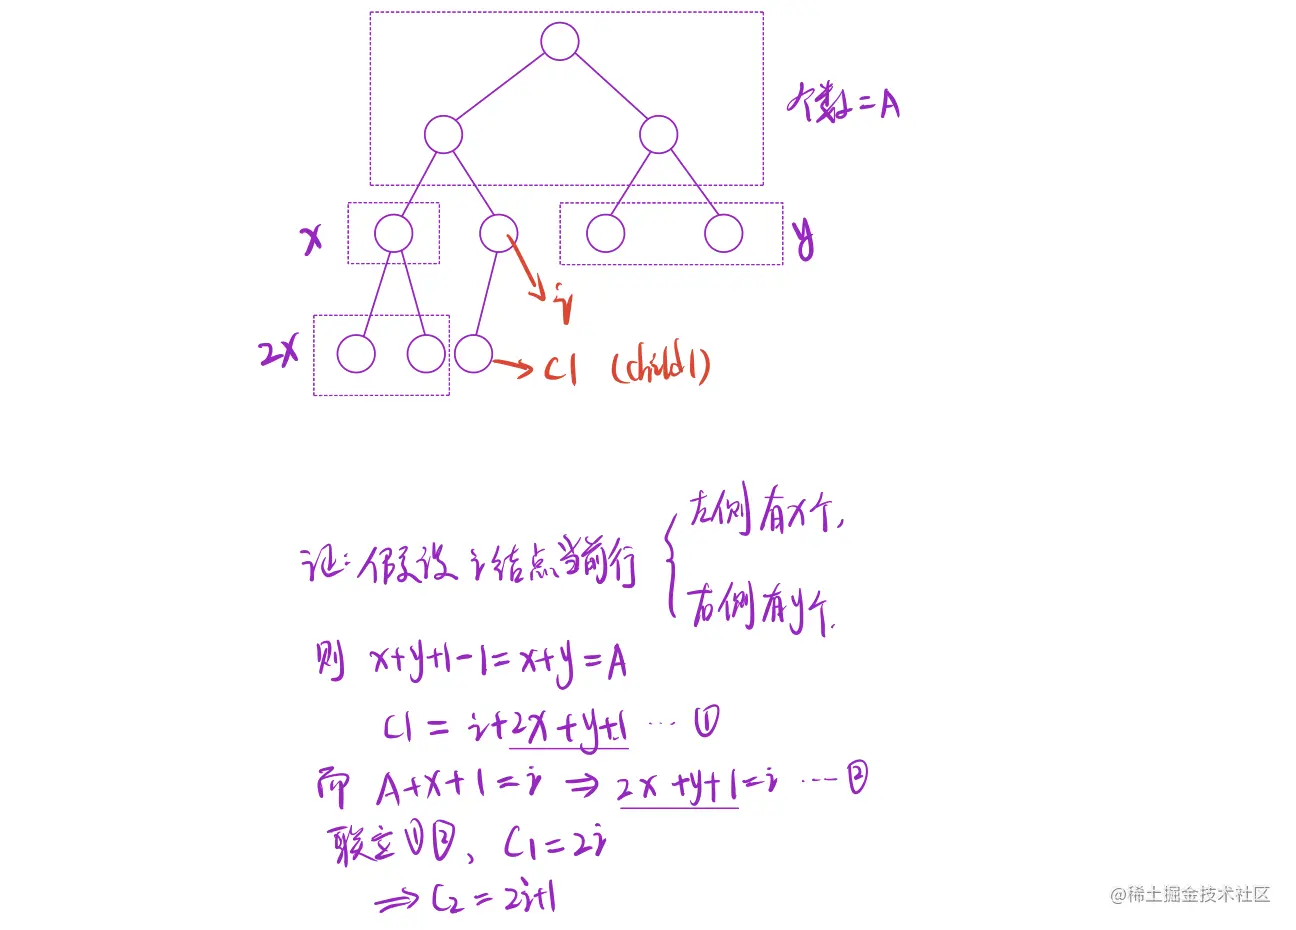 个数=A
x
y
i
2x
C1 (child1)
证:假设i结点当前行
左侧有x个,
右侧有y个.
则 x+y+1-1=x+y=A
C1 = i+2x+y+1 ··· ①
而 A+x+1=i ⇒ 2x+y+1=i ···· ②
联立①②, C1=2i
⇒ C2 = 2i+1
@稀土掘金技术社区